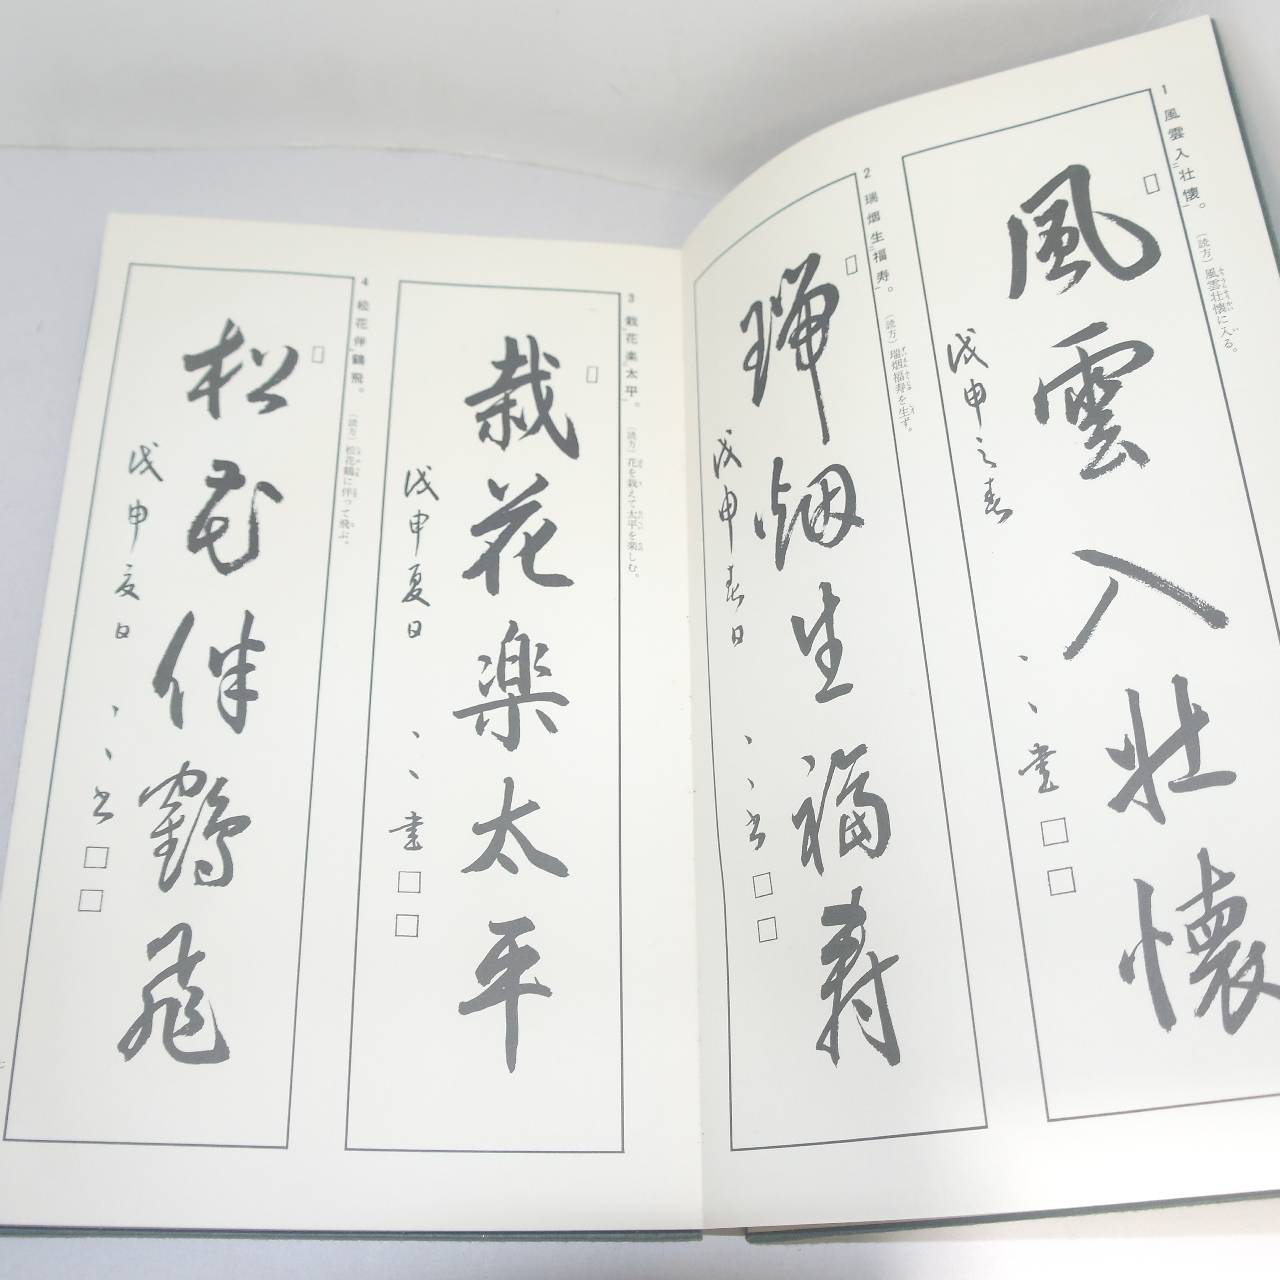 1 風雲入ニ壮懐一。
(読方)風雲壮懐に入る。
風雲入壮懐
戊申之春
、、書
2 瑞烟生ニ福寿一。
(読方)瑞烟福寿を生ず。
瑞烟生福寿
戊申春日
、、書
3 栽レ花楽ニ太平一。
(読方)花を栽えて太平を楽しむ。
栽花楽太平
戊申夏日
、、書
4 松花伴レ鶴飛。
(読方)松花鶴に伴って飛ぶ。
松花伴鶴飛
戊申夏日
、、書